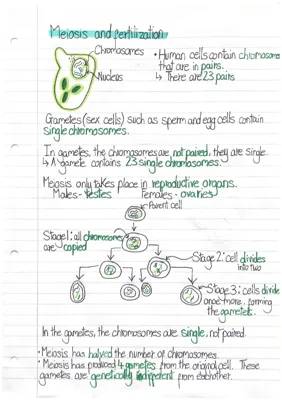 Meiosis and fertilization
Chromosomes
Nucleus
• Human cells contain chromosomes
that are in pairs.
↳ There are 23 pairs
Gametes (sex cells) such as sperm and egg cells contain
single chromosomes.
In gametes, the chromosomes are not paired, they are single.
↳ A gamete contains 23 single chromosomes.
Meiosis only takes place in reproductive organs.
Males - testes Females - ovaries
Parent cell
Stage 1: all chromosome
are copied
Stage 2: cell divides
into two
Stage 3: cells divide
once more, forming
the gametes.
In the gametes, the chromosomes are single, not paired.
• Meiosis has halved the number of chromosomes.
• Meiosis has produced 4 gametes from the original cell. These
gametes are genetically from eachother.